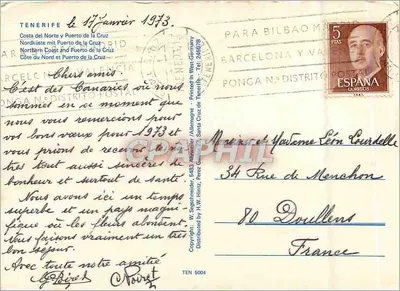 TENERIFE
le 17 Janvier 1973.
Costa del Norte y Puerto de la Cruz
Nordküste mit Puerto de la Cruz
Northern Coast and Puerto de la Cruz
Côte du Nord et Puerto de la Cruz
Chers amis.
C'est des Canaries où nous
sommes en ce moment que
nous vous remercions pour
vos bons vœux pour 1973 et
vous prions de recevoir les nô
tres tout aussi sincères de
bonheur et surtout de santé.
Nous avons ici un temps
superbe et un pays magni-
fique où les fleurs abondent.
Nous faisons vraiment un très
bon séjour.
Avec toute notre amitié
PARA BILBAO
MADRID
BARCELONA Y VA
PONGA Nº DISTRITO POSTAL
5
PTAS
ESPAÑA
CORREOS
Monsieur et Madame Léon Lourdelle
34 Rue de Menchon
80 Doullens
France
Copyright: W. Sugschneider, 5483 Ahrweiler (Allemagne) - Printed in West-Germany
Distributed by H.W. Hintz, Santa Cruz de Tenerife - Tel. 246678
TEN 5004
CPAPHIL